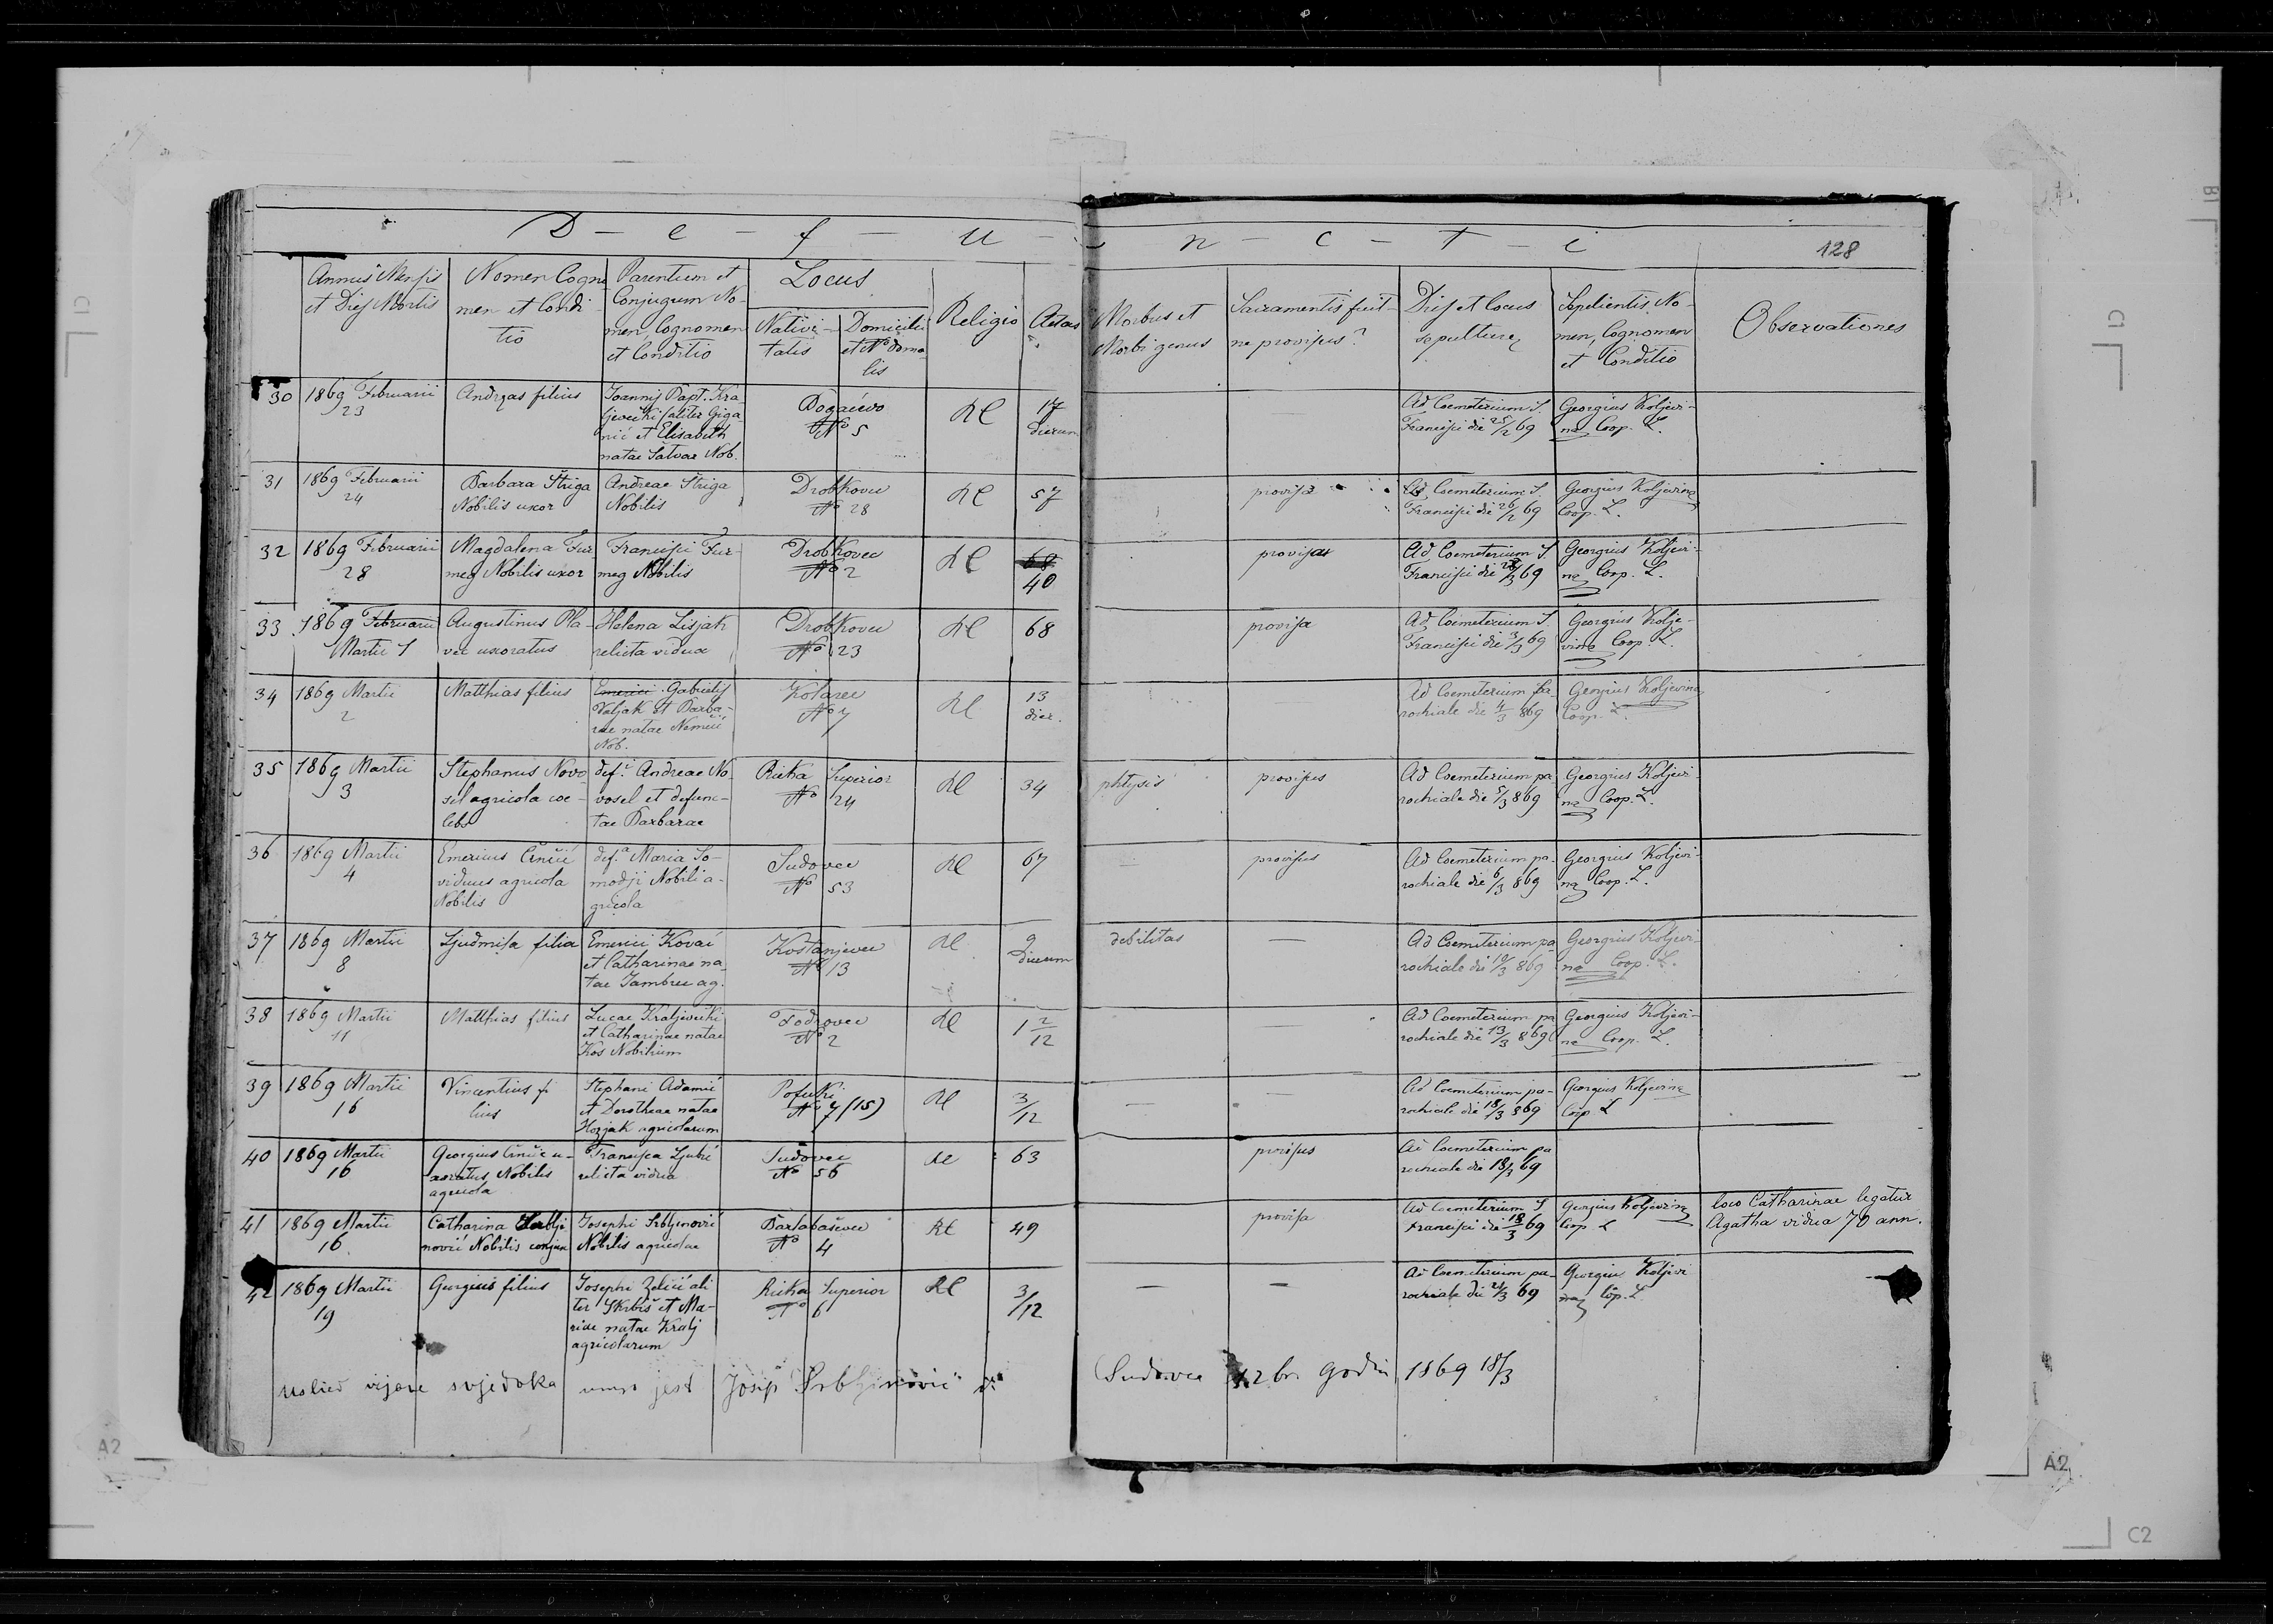 D - e - f - u - n - c - t - i
128
Annus Mensis et Dies Mortis
Nomen Cogno men et Condi tio
Parentum et Conjugum No- men Cognomen et Conditio
Locus
Nativi- tatis
Domicilii et No domi- lis
Religio
Aetas
Morbus et Morbi genus
Sacramentis fuit- ne provisus?
Dies et locus sepulturae
Sepelientis No- men, Cognomen et Conditio
Observationes
30 1869 Februarii 23 Andreas filius Joannis Bapt. Kra- ljevečki aliter Giga- nić et Elisabeth natae Šatvar Nob. Bogačevo No 5 RC 17 dierum — Ad Coemeterium S. Francisci die 25/2 69 Georgius Koljevi- na Coop. L.
31 1869 Februarii 24 Barbara Štriga Nobilis uxor Andreae Štriga Nobilis Drobkovec No 28 RC 57 provisa Ad Coemeterium S. Francisci die 26/2 69 Georgius Koljevina Coop. L.
32 1869 Februarii 28 Magdalena Fur meg Nobilis uxor Francisci Fur- meg Nobilis Drobkovec No 2 RC 68 40 provisa Ad Coemeterium S. Francisci die /3 69 Georgius Koljevi- na Coop. L.
33 1869 Februarii Martii 1 Augustinus Pla- vec uxoratus Helena Lisjak relicta vidua Drobkovec No 23 RC 68 provisa Ad Coemeterium S. Francisci die 3/3 69 Georgius Kolje- vina Coop. L.
34 1869 Martii 2 Matthias filius Emerici Gabrielis Valjak et Barba- rae natae Nemčić Nob. Kolarec No 7 RC 13 dier. — Ad Coemeterium pa- rochiale die 4/3 869 Georgius Koljevina Coop. L.
35 1869 Martii 3 Stephanus Novo- sel agricola coe- lebs def.i Andreae No- vosel et defunc- tae Barbarae Rieka Superior No 24 RC 34 phtysis provisus Ad Coemeterium pa- rochiale die 5/3 869 Georgius Koljevi- na Coop. L.
36 1869 Martii 4 Emericus Črnčić viduus agricola Nobilis def.a Maria So- modji Nobili a- gricola Sudovec No 53 RC 67 — provisus Ad Coemeterium pa- rochiale die 6/3 869 Georgius Koljevi- na Coop. L.
37 1869 Martii 8 Ljudmila filia Emerici Kovač et Catharinae na- tae Jambrec ag. Kostanjevec No 13 RC 9 dierum debilitas — Ad Coemeterium pa- rochiale die 10/3 869 Georgius Koljevi- na Coop. L.
38 1869 Martii 11 Matthias filius Lucae Kraljevečki et Catharinae natae Kos Nobilium Fodrovec No 2 RC 1 2/12 — Ad Coemeterium pa rochiale die 13/3 869 Georgius Koljevi- na Coop. L.
39 1869 Martii 16 Vincentius fi lius Stephani Adamić et Dorotheae natae Hozjak agricolarum Pofuki No 7 (15) RC 3/12 — — Ad Coemeterium pa- rochiale die 18/3 869 Georgius Koljevina Coop L
40 1869 Martii 16 Georgius Črnčić u- xoratus Nobilis agricola Francisca Ljubić relicta vidua Sudovec No 56 RC 63 provisus Ad Coemeterium pa rochiale die 18/3 69
41 1869 Martii 16 Catharina Serblji nović Nobilis conjux Josephi Srbljinović Nobilis agricolae Barlabaševec No 4 RC 49 provisa Ad Coemeterium S Francisci die 18/3 69 Georgius Koljevina Coop. L loco Catharinae legatur Agatha vidua 70 ann.
42 1869 Martii 19 Georgius filius Josephi Zdelić ali ter Skrbiš et Ma- riae natae Kralj agricolarum Rieka Superior No 6 RC 3/12 — — Ad Coemeterium pa- rochiale die 21/3 69 Georgius Koljevi na Coop. L.
uslied svjedoka umro jest Josip Srbljinović Sudovca 42 br. godin 1869 18/3
A2
A2
C1
C1
B1
C2